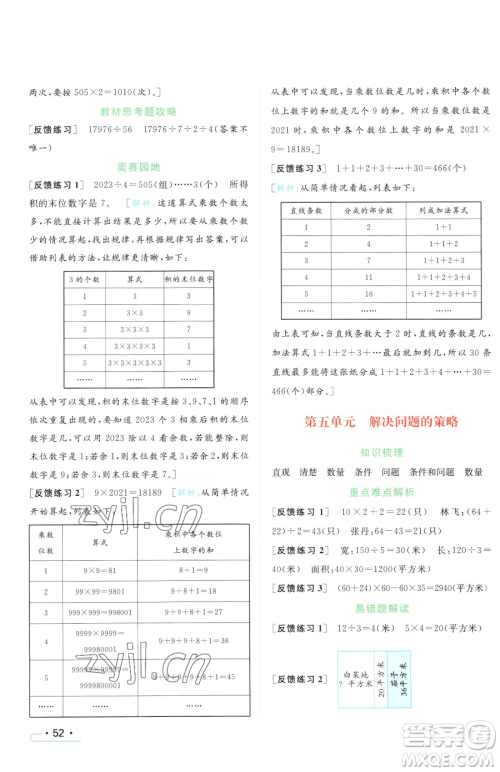 两次，要按 505×2=1010(次)。
教材思考题攻略
[反馈练习] 17976÷56　17976÷7÷2÷4(答案不
唯一)
奥赛园地
[反馈练习 1] 2023÷4=505(组)……3(个)　所得
积的末位数字是 7。[解析:这道算式乘数个数太
多,不可能直接计算出结果去看末位数字是几。所
以要从简单的情况算起,找出规律再写出答案,可以
借助列表的方法,让规律更清晰。如:
3 的个数　算式　积的末位数字
1　3　3
2　3×3　9
3　3×3×3　7
4　3×3×3×3　1
5　3×3×3×3×3　3
……　……　……
从表中可以发现,积的末位数字按 3,9,7,1 的顺序
依次重复出现,所以要想知道 2023 个 3 相乘后积的
末位数字,用 2023 除以 4 看余数。若能整除,则末
位数字是 1;若余 1,则末位数字是 3;若余 2,则末位
数字是 9;若余 3,则末位数字是 7。]
[反馈练习 2] 9×2021=18189　[解析:从简单情况
开始算起,列表如下:
乘数位数　算式　乘积中各个数位上数字的和
1　9×9=81　8+1=9
2　99×99=9801　9+8+1=18
3　999×999=998001　9+9+8+1=27
4　9999×9999=99980001　9+9+9+8+1=36
5　99999×99999=9999800001　9+9+9+9+8+1=45
……　……　……
· 52 ·
从表中可以看出,当乘数位数是几时,乘积中各个数
位上数字的和就是几个 9 的和。所以当乘数位数是
2021 时,乘积中各个数位上数字的和是 2021×
9=18189。]
[反馈练习 3] 1+1+2+3+…+30=466(个)
[解析:从简单情况看起,列表如下:
直线条数　分成的部分数　列成加法算式
1　2　1+1
2　4　1+1+2
3　7　1+1+2+3
4　11　1+1+2+3+4
5　16　1+1+2+3+4+5
……　……　……
由上表可知,当直线条数大于 2 时,直线的条数是几,
加法算式 1+1+2+3+…就加到几,所以 30 条
直线最多能把圆分成 1+1+2+3+…+30=
466(个)部分。]
第五单元　解决问题的策略
知识梳理
直观　清楚　数量　条件　问题　条件和问题　数量
重点难点解析
[反馈练习 1] 10×2+2=22(只)　林飞:(22+
2)÷2=12(只)　张丹:24÷3=8(只)
[反馈练习 2] 宽:150÷5=30(米)　长:120÷3=
40(米)　面积:40×30=1200(平方米)
[反馈练习 3] 2940÷6×6=2940(平方米)
易错题解读
[反馈练习 1] 12÷3=4(米)　5×4=20(平方米)
[反馈练习 2]
白菜地
? 平方米
20平方米
茄子
36平方米
zyjl.cn
zyjl.cn
答案圈